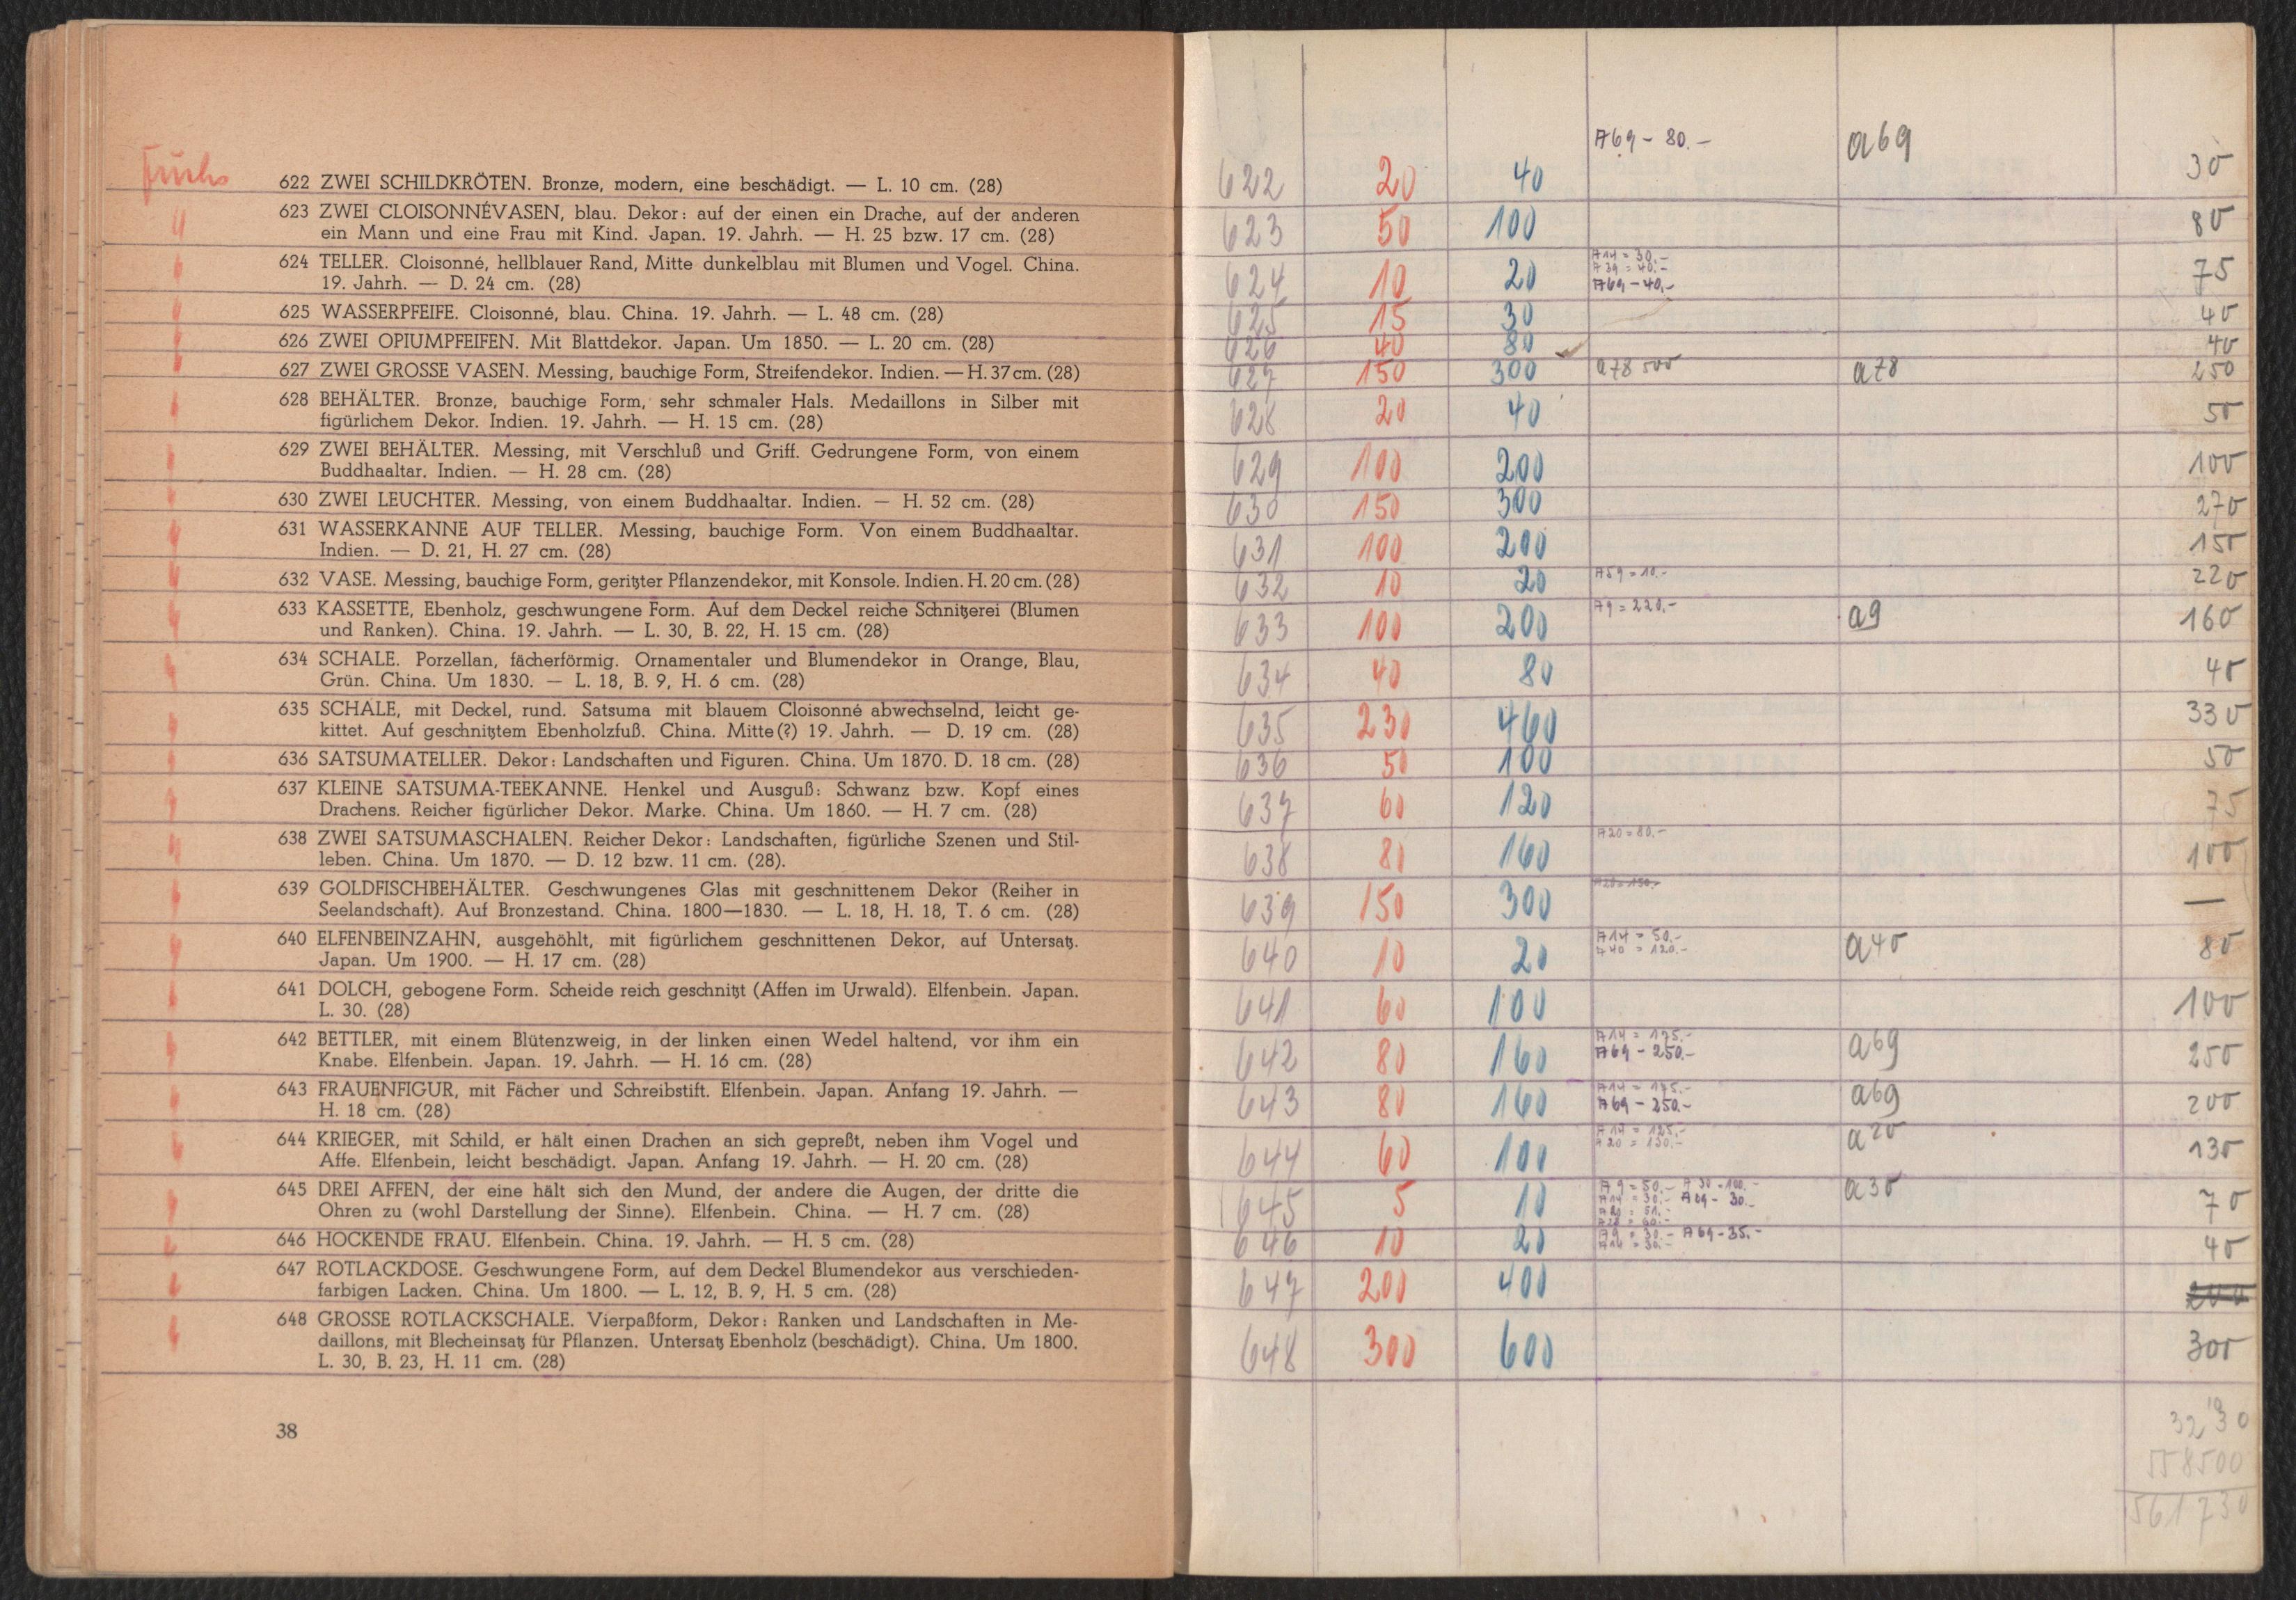 Fuchs
622 ZWEI SCHILDKRÖTEN. Bronze, modern, eine beschädigt. — L. 10 cm. (28)
623 ZWEI CLOISONNÉVASEN, blau. Dekor: auf der einen ein Drache, auf der anderen
ein Mann und eine Frau mit Kind. Japan. 19. Jahrh. — H. 25 bzw. 17 cm. (28)
624 TELLER. Cloisonné, hellblauer Rand, Mitte dunkelblau mit Blumen und Vogel. China.
19. Jahrh. — D. 24 cm. (28)
625 WASSERPFEIFE. Cloisonné, blau. China. 19. Jahrh. — L. 48 cm. (28)
626 ZWEI OPIUMPFEIFEN. Mit Blattdekor. Japan. Um 1850. — L. 20 cm. (28)
627 ZWEI GROSSE VASEN. Messing, bauchige Form, Streifendekor. Indien. — H. 37 cm. (28)
628 BEHÄLTER. Bronze, bauchige Form, sehr schmaler Hals. Medaillons in Silber mit
figürlichem Dekor. Indien. 19. Jahrh. — H. 15 cm. (28)
629 ZWEI BEHÄLTER. Messing, mit Verschluß und Griff. Gedrungene Form, von einem
Buddhaaltar. Indien. — H. 28 cm. (28)
630 ZWEI LEUCHTER. Messing, von einem Buddhaaltar. Indien. — H. 52 cm. (28)
631 WASSERKANNE AUF TELLER. Messing, bauchige Form. Von einem Buddhaaltar.
Indien. — D. 21, H. 27 cm. (28)
632 VASE. Messing, bauchige Form, geritzter Pflanzendekor, mit Konsole. Indien. H. 20 cm. (28)
633 KASSETTE, Ebenholz, geschwungene Form. Auf dem Deckel reiche Schnitzerei (Blumen
und Ranken). China. 19. Jahrh. — L. 30, B. 22, H. 15 cm. (28)
634 SCHALE. Porzellan, fächerförmig. Ornamentaler und Blumendekor in Orange, Blau,
Grün. China. Um 1830. — L. 18, B. 9, H. 6 cm. (28)
635 SCHALE, mit Deckel, rund. Satsuma mit blauem Cloisonné abwechselnd, leicht ge-
kittet. Auf geschnitztem Ebenholzfuß. China. Mitte (?) 19. Jahrh. — D. 19 cm. (28)
636 SATSUMATELLER. Dekor: Landschaften und Figuren. China. Um 1870. D. 18 cm. (28)
637 KLEINE SATSUMA-TEEKANNE. Henkel und Ausguß: Schwanz bzw. Kopf eines
Drachens. Reicher figürlicher Dekor. Marke. China. Um 1860. — H. 7 cm. (28)
638 ZWEI SATSUMASCHALEN. Reicher Dekor: Landschaften, figürliche Szenen und Stil-
leben. China. Um 1870. — D. 12 bzw. 11 cm. (28).
639 GOLDFISCHBEHÄLTER. Geschwungenes Glas mit geschnittenem Dekor (Reiher in
Seelandschaft). Auf Bronzestand. China. 1800—1830. — L. 18, H. 18, T. 6 cm. (28)
640 ELFENBEINZAHN, ausgehöhlt, mit figürlichem geschnittenen Dekor, auf Untersatz.
Japan. Um 1900. — H. 17 cm. (28)
641 DOLCH, gebogene Form. Scheide reich geschnitzt (Affen im Urwald). Elfenbein. Japan.
L. 30. (28)
642 BETTLER, mit einem Blütenzweig, in der linken einen Wedel haltend, vor ihm ein
Knabe. Elfenbein. Japan. 19. Jahrh. — H. 16 cm. (28)
643 FRAUENFIGUR, mit Fächer und Schreibstift. Elfenbein. Japan. Anfang 19. Jahrh. —
H. 18 cm. (28)
644 KRIEGER, mit Schild, er hält einen Drachen an sich gepreßt, neben ihm Vogel und
Affe. Elfenbein, leicht beschädigt. Japan. Anfang 19. Jahrh. — H. 20 cm. (28)
645 DREI AFFEN, der eine hält sich den Mund, der andere die Augen, der dritte die
Ohren zu (wohl Darstellung der Sinne). Elfenbein. China. — H. 7 cm. (28)
646 HOCKENDE FRAU. Elfenbein. China. 19. Jahrh. — H. 5 cm. (28)
647 ROTLACKDOSE. Geschwungene Form, auf dem Deckel Blumendekor aus verschieden-
farbigen Lacken. China. Um 1800. — L. 12, B. 9, H. 5 cm. (28)
648 GROSSE ROTLACKSCHALE. Vierpaßform, Dekor: Ranken und Landschaften in Me-
daillons, mit Blecheinsatz für Pflanzen. Untersatz Ebenholz (beschädigt). China. Um 1800.
L. 30, B. 23, H. 11 cm. (28)
38
622 20 40 A69 - 80.- a69 30
623 50 100 80
624 10 20 A14 = 30.- A39 = 40.- A69 - 40.- 75
625 15 30 40
626 40 80 40
627 150 300 a78 500 a78 250
628 20 40 50
629 100 200 100
630 150 300 270
631 100 200 150
632 10 20 A59 = 10.- 220
633 100 200 A9 = 220.- a9 160
634 40 80 40
635 230 460 330
636 50 100 50
637 60 120 75
638 80 160 A20 = 80.- 100
639 150 300 —
640 10 20 A14 = 50.- A40 = 120.- a40 80
641 60 100 100
642 80 160 A14 = 175.- A69 - 250.- a69 250
643 80 160 A14 = 175.- A69 - 250.- a69 200
644 60 100 A14 = 125.- A20 = 130.- a20 130
645 5 10 A9 = 50.- A30 = 100.- A14 = 30.- A69 - 30.- a30 70
646 10 20 A9 = 30.- A69 - 35.- A14 = 30.- 40
647 200 400 200
648 300 600 300
3230
558500
561730